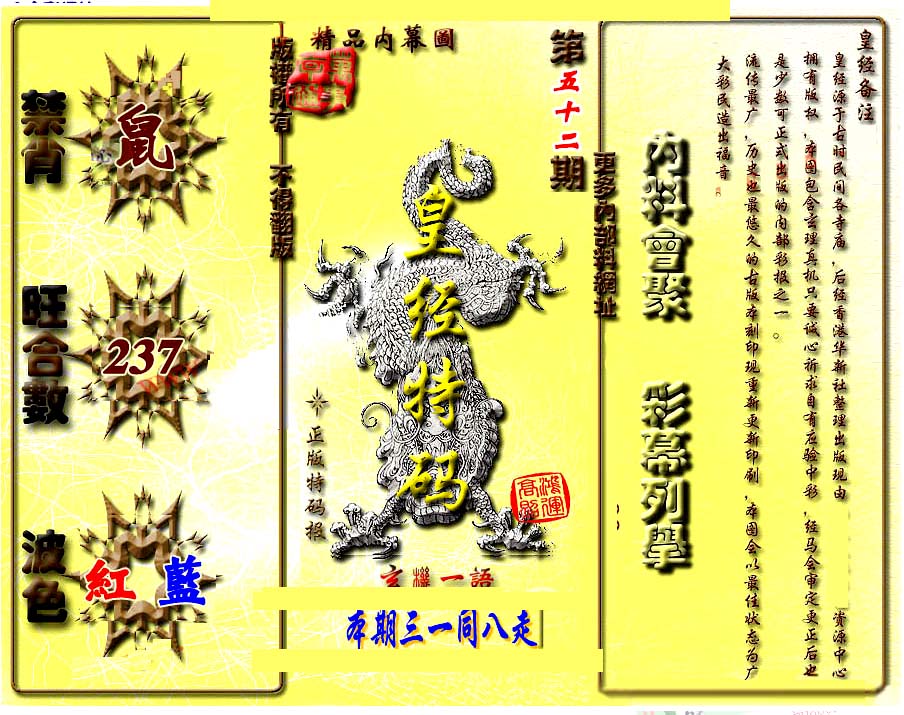 精品内幕圖
第五十二期
版權所有 不得翻版
更多内部料網址
禁肖
鼠
旺合數
237
波色
紅 藍
皇经特码
正版特码报
鴻運高照
玄機一語
本期三一同八走
内料會聚
彩幕列舉
皇经备注
皇经源于古时民间各寺庙,后经香港华新社整理出版现由 资源中心
拥有版权,本图包含玄理真机只要诚心祈求自有应验中彩,经马会审定更正后也
是少数可正式出版的内部彩报之一。
流传最广,历史也最悠久的古版本刻印现重新更新印刷,本图会以最佳状态为广
大彩民造出福音